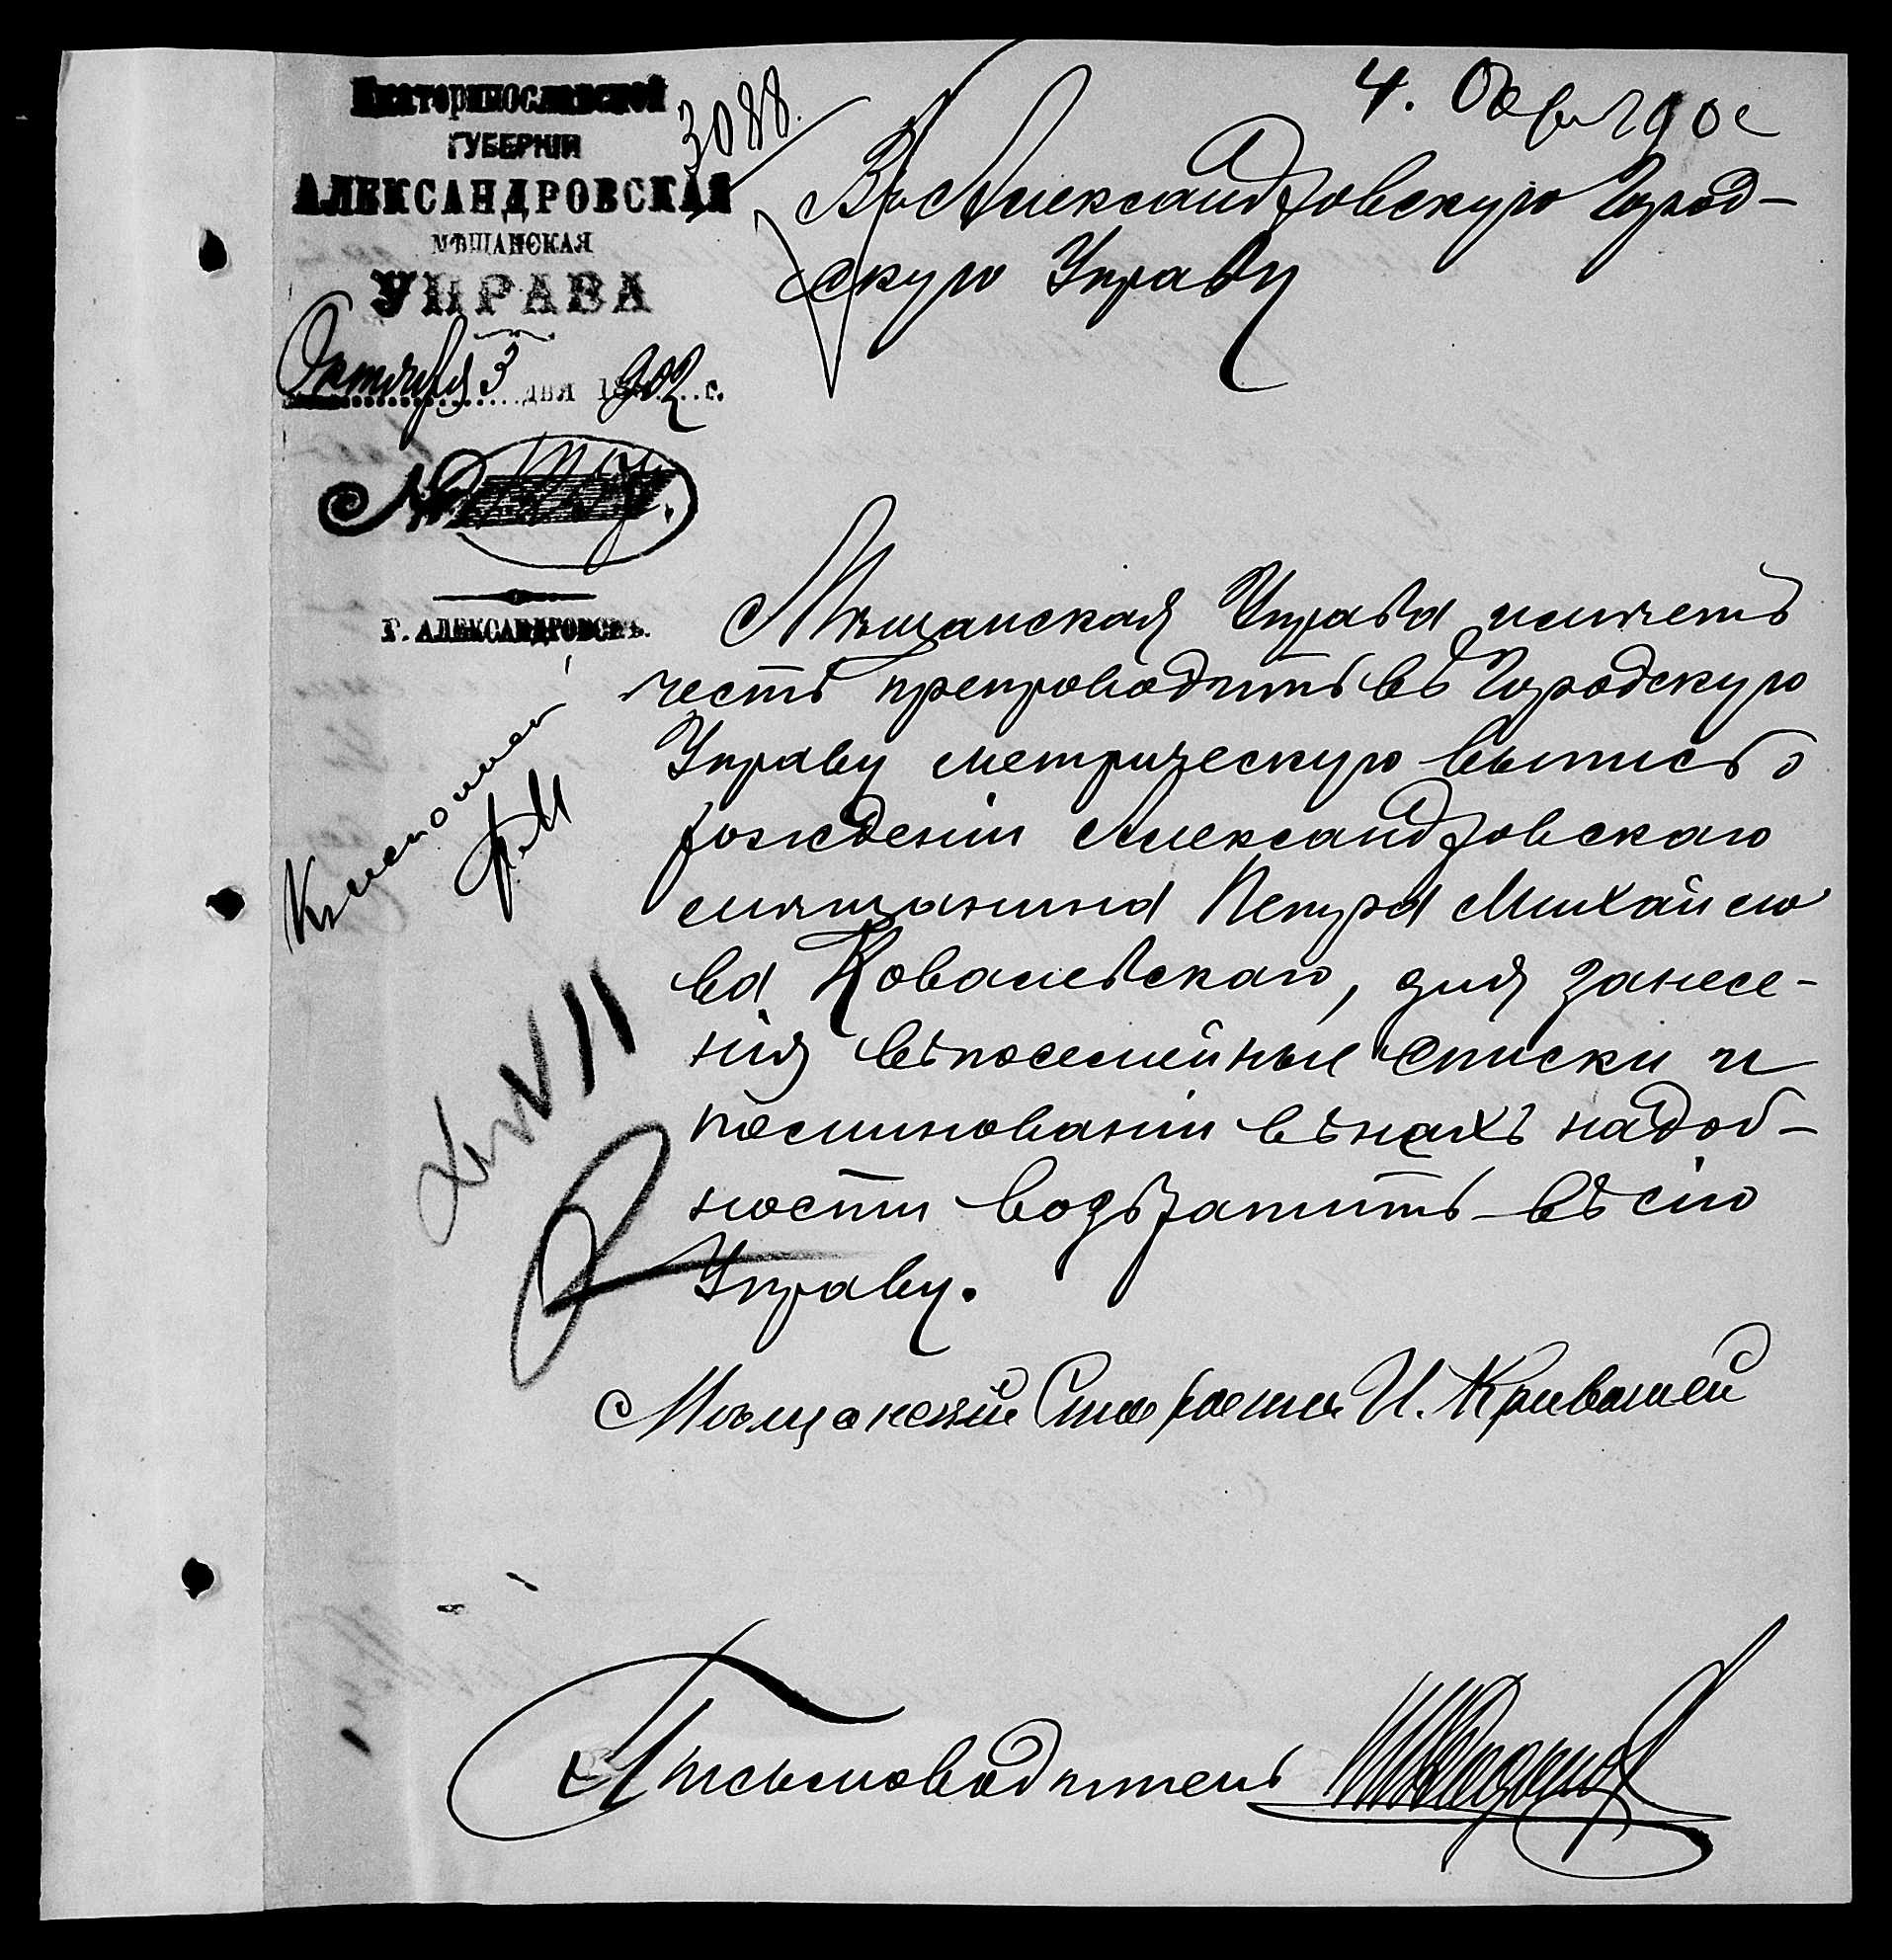 Екатеринославской
ГУБЕРНІИ
АЛЕКСАНДРОВСКАЯ
МѢЩАНСКАЯ
УПРАВА
Октября 3 дня 1902 г.
№
Г. АЛЕКСАНДРОВСКЪ.
3088.
4.
Въ Александровскую Город-
скую Управу
Мѣщанская Управа имѣетъ
честь препроводить въ Городскую
Управу метрическую выпись о
рожденіи Александровскаго
мѣщанина Петра Михайло
ва Ковалевскаго, для занесе-
нія въ посемейные списки и
поминованіи въ ней надоб-
ности возвратить въ сію
Управу.
Мѣщанскій Староста И. Кривошей
Письмоводитель